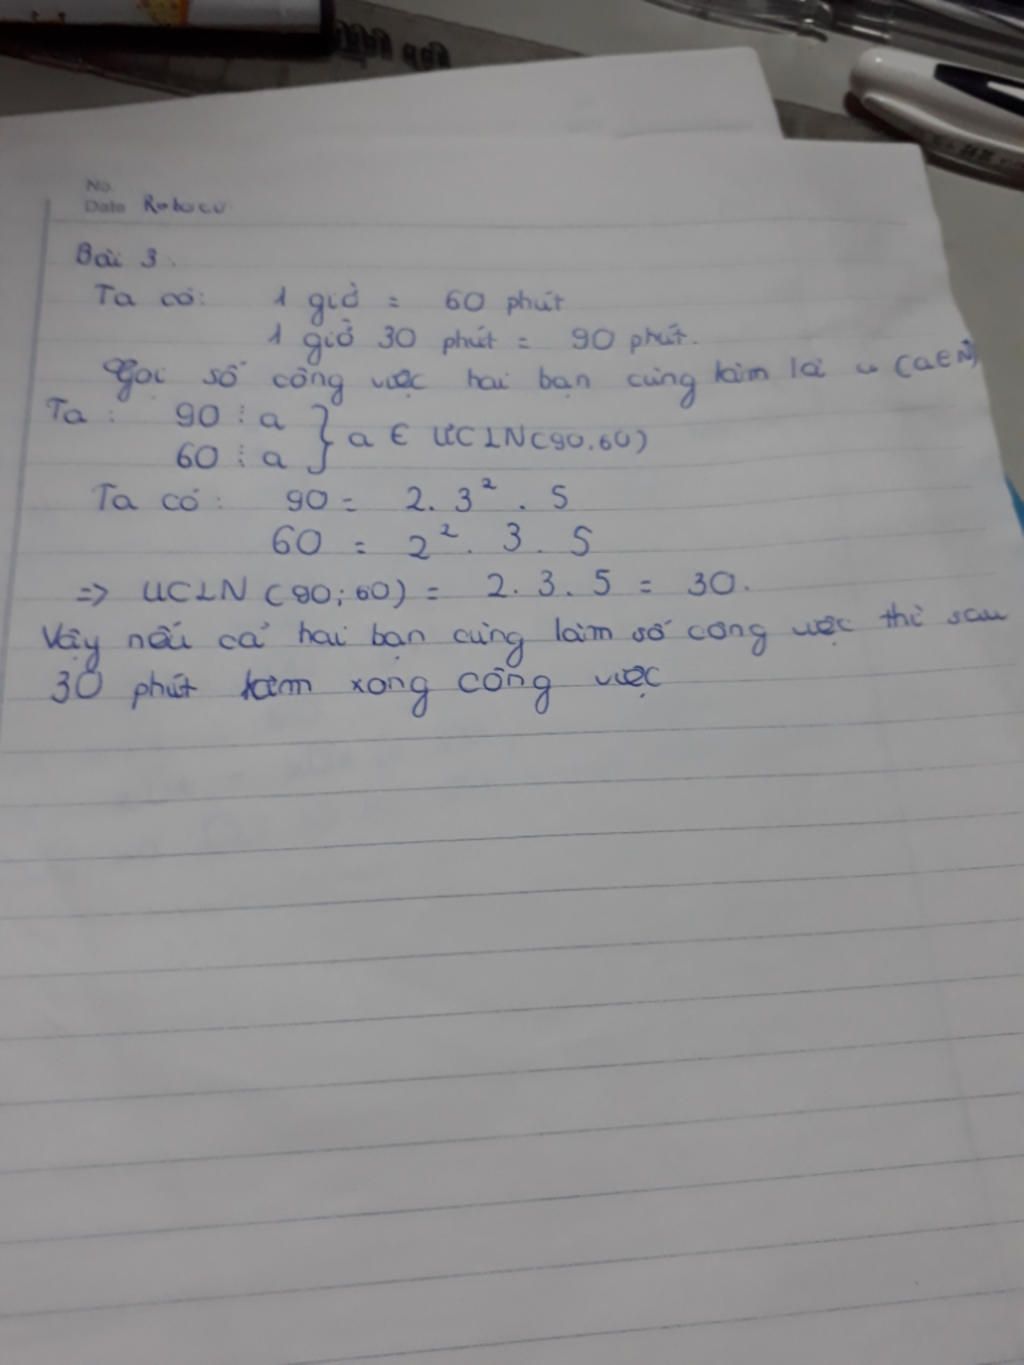 No.
Date Roboco
Bài 3.
Ta có: 1 giờ = 60 phút
1 giờ 30 phút = 90 phút.
Gọi số công việc hai bạn cùng làm lài a (a∈N)
Ta : 90 ⋮ a } a ∈ ƯCLN(90.60)
60 ⋮ a
Ta có: 90 = 2. 3² . 5
60 = 2². 3. 5
=> ƯCLN (90;60) = 2. 3. 5 = 30.
Vậy nếu cả hai bạn cùng làm số công việc thì sau
30 phút làm xong công việc